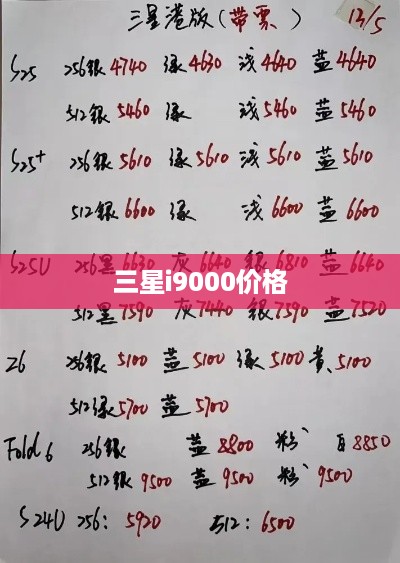 三星港版(带票) 12/5
S25 256銀4740 绿4630 浅4640 蓝4640
512銀5460 绿 浅5460 蓝5460
S25+ 256銀5610 绿5610 浅5610 蓝5610
512銀6600 绿 浅6600 蓝6600
S25U 256黑6630 灰6640 銀6810 蓝6640
三星i9000价格
512黑7590 灰7440 銀7590 蓝7520
Z6 256銀5100 蓝5100 绿5100 黄5100
512绿5700 蓝5700
Fold6 256銀 蓝8800 粉 白8850
512銀9500 蓝9500 粉9500
S24U 256:5920 512:6500